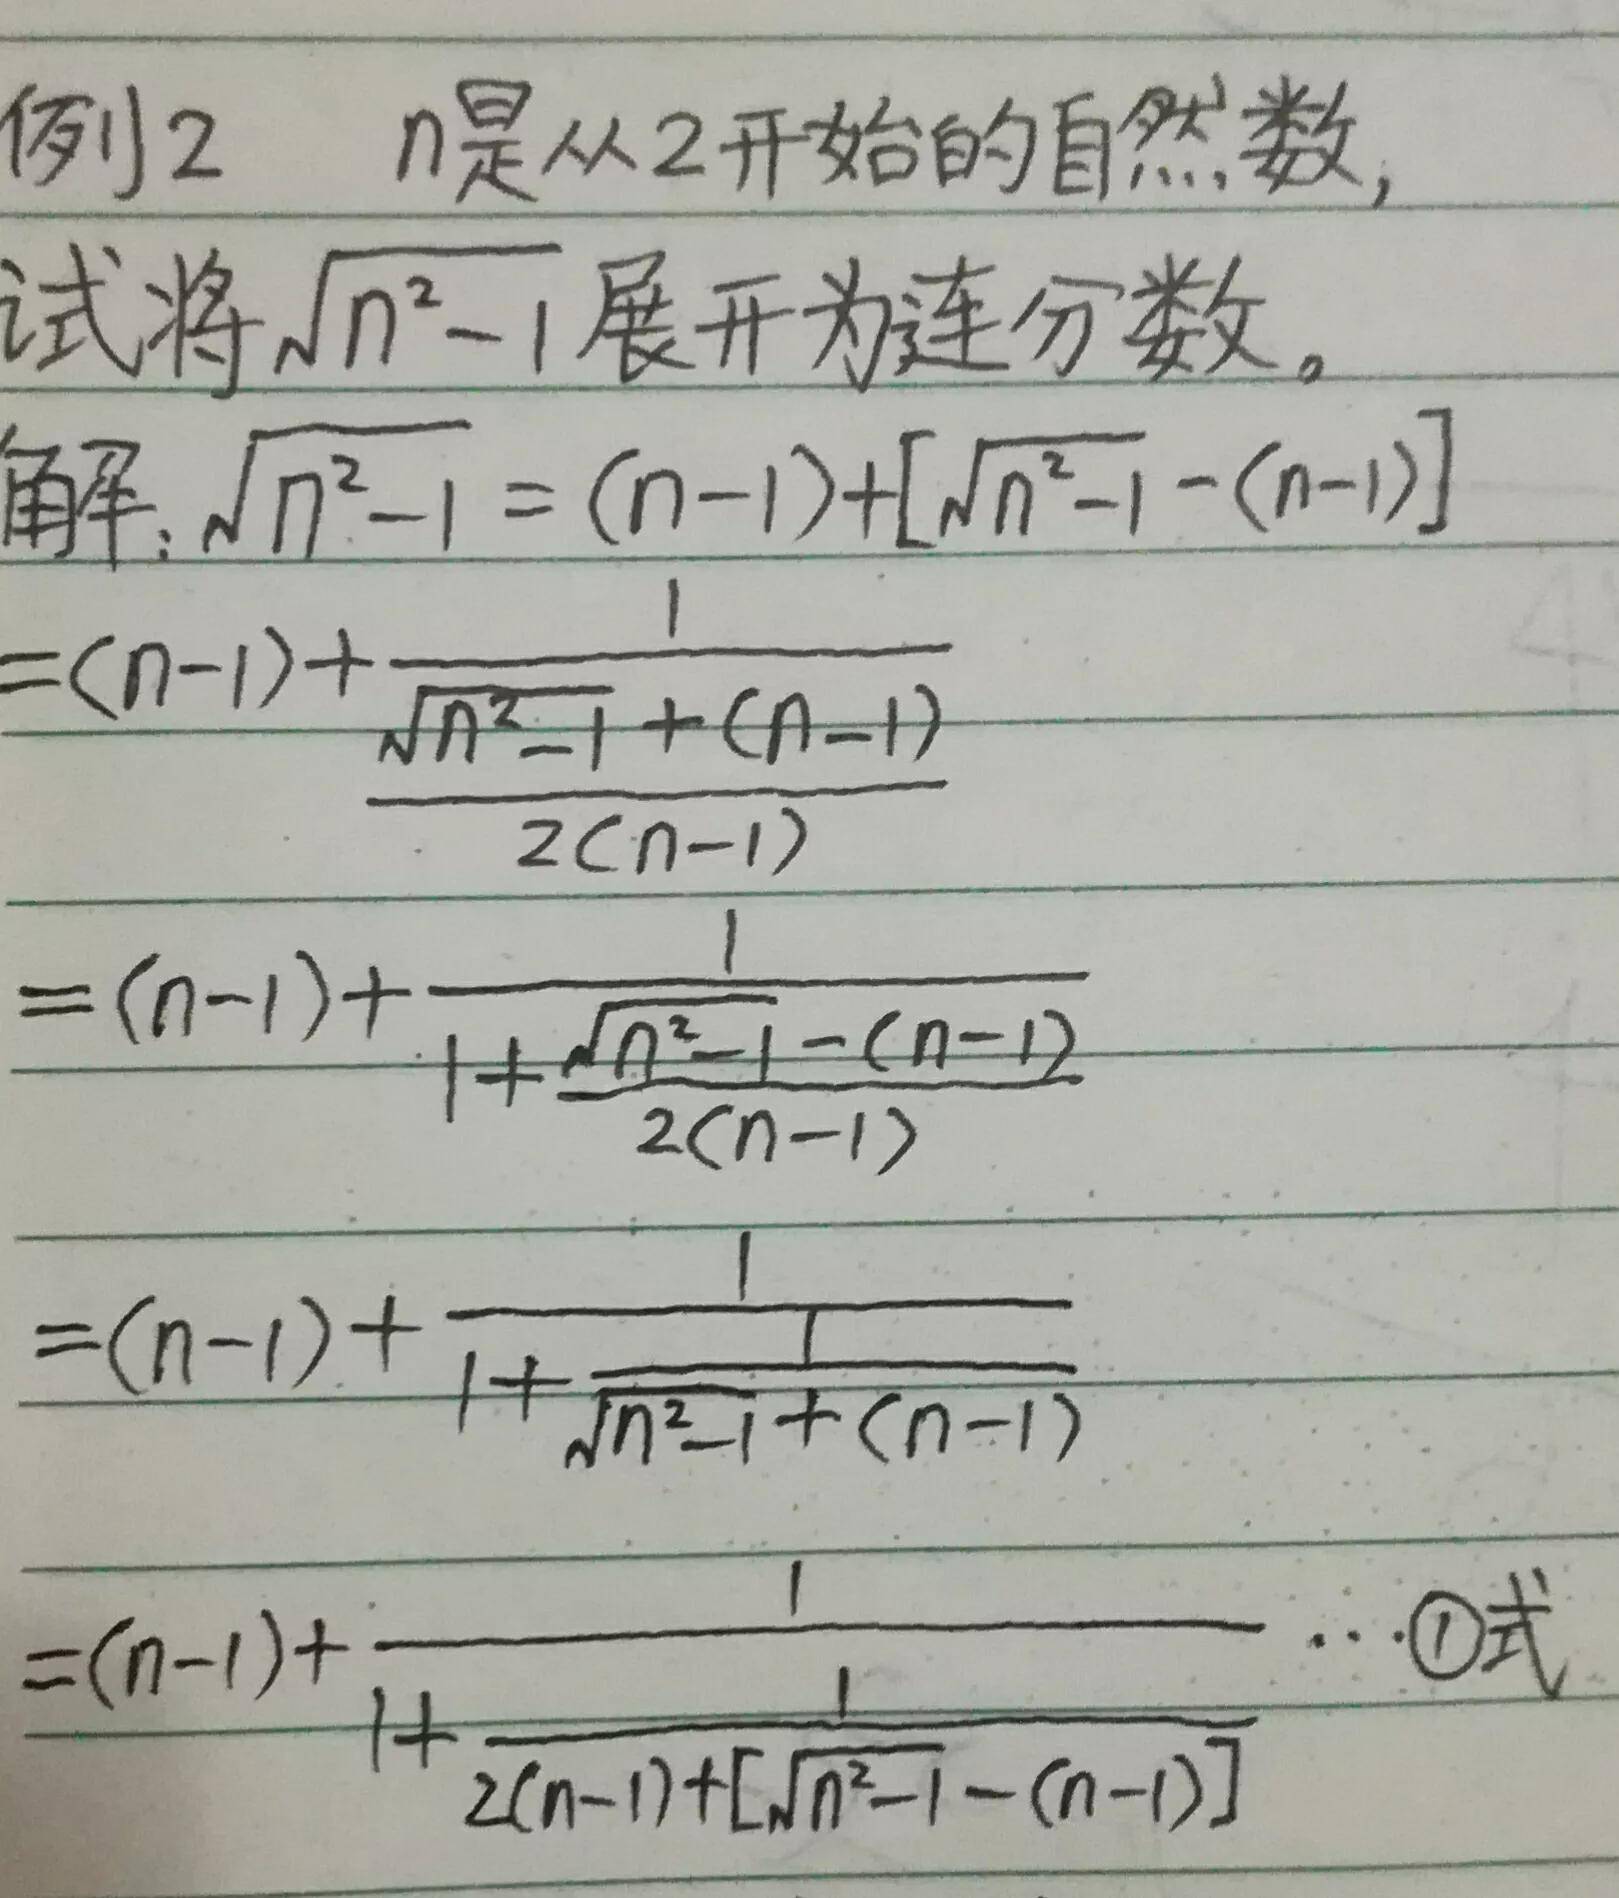 例2 n是从2开始的自然数,
试将√(n²-1)展开为连分数。
解:√(n²-1) = (n-1)+[√(n²-1)-(n-1)]
=(n-1)+1/((√(n²-1)+(n-1))/(2(n-1)))
=(n-1)+1/(1+(√(n²-1)-(n-1))/(2(n-1)))
=(n-1)+1/(1+1/(√(n²-1)+(n-1)))
=(n-1)+1/(1+1/(2(n-1)+[√(n²-1)-(n-1)])) ···①式